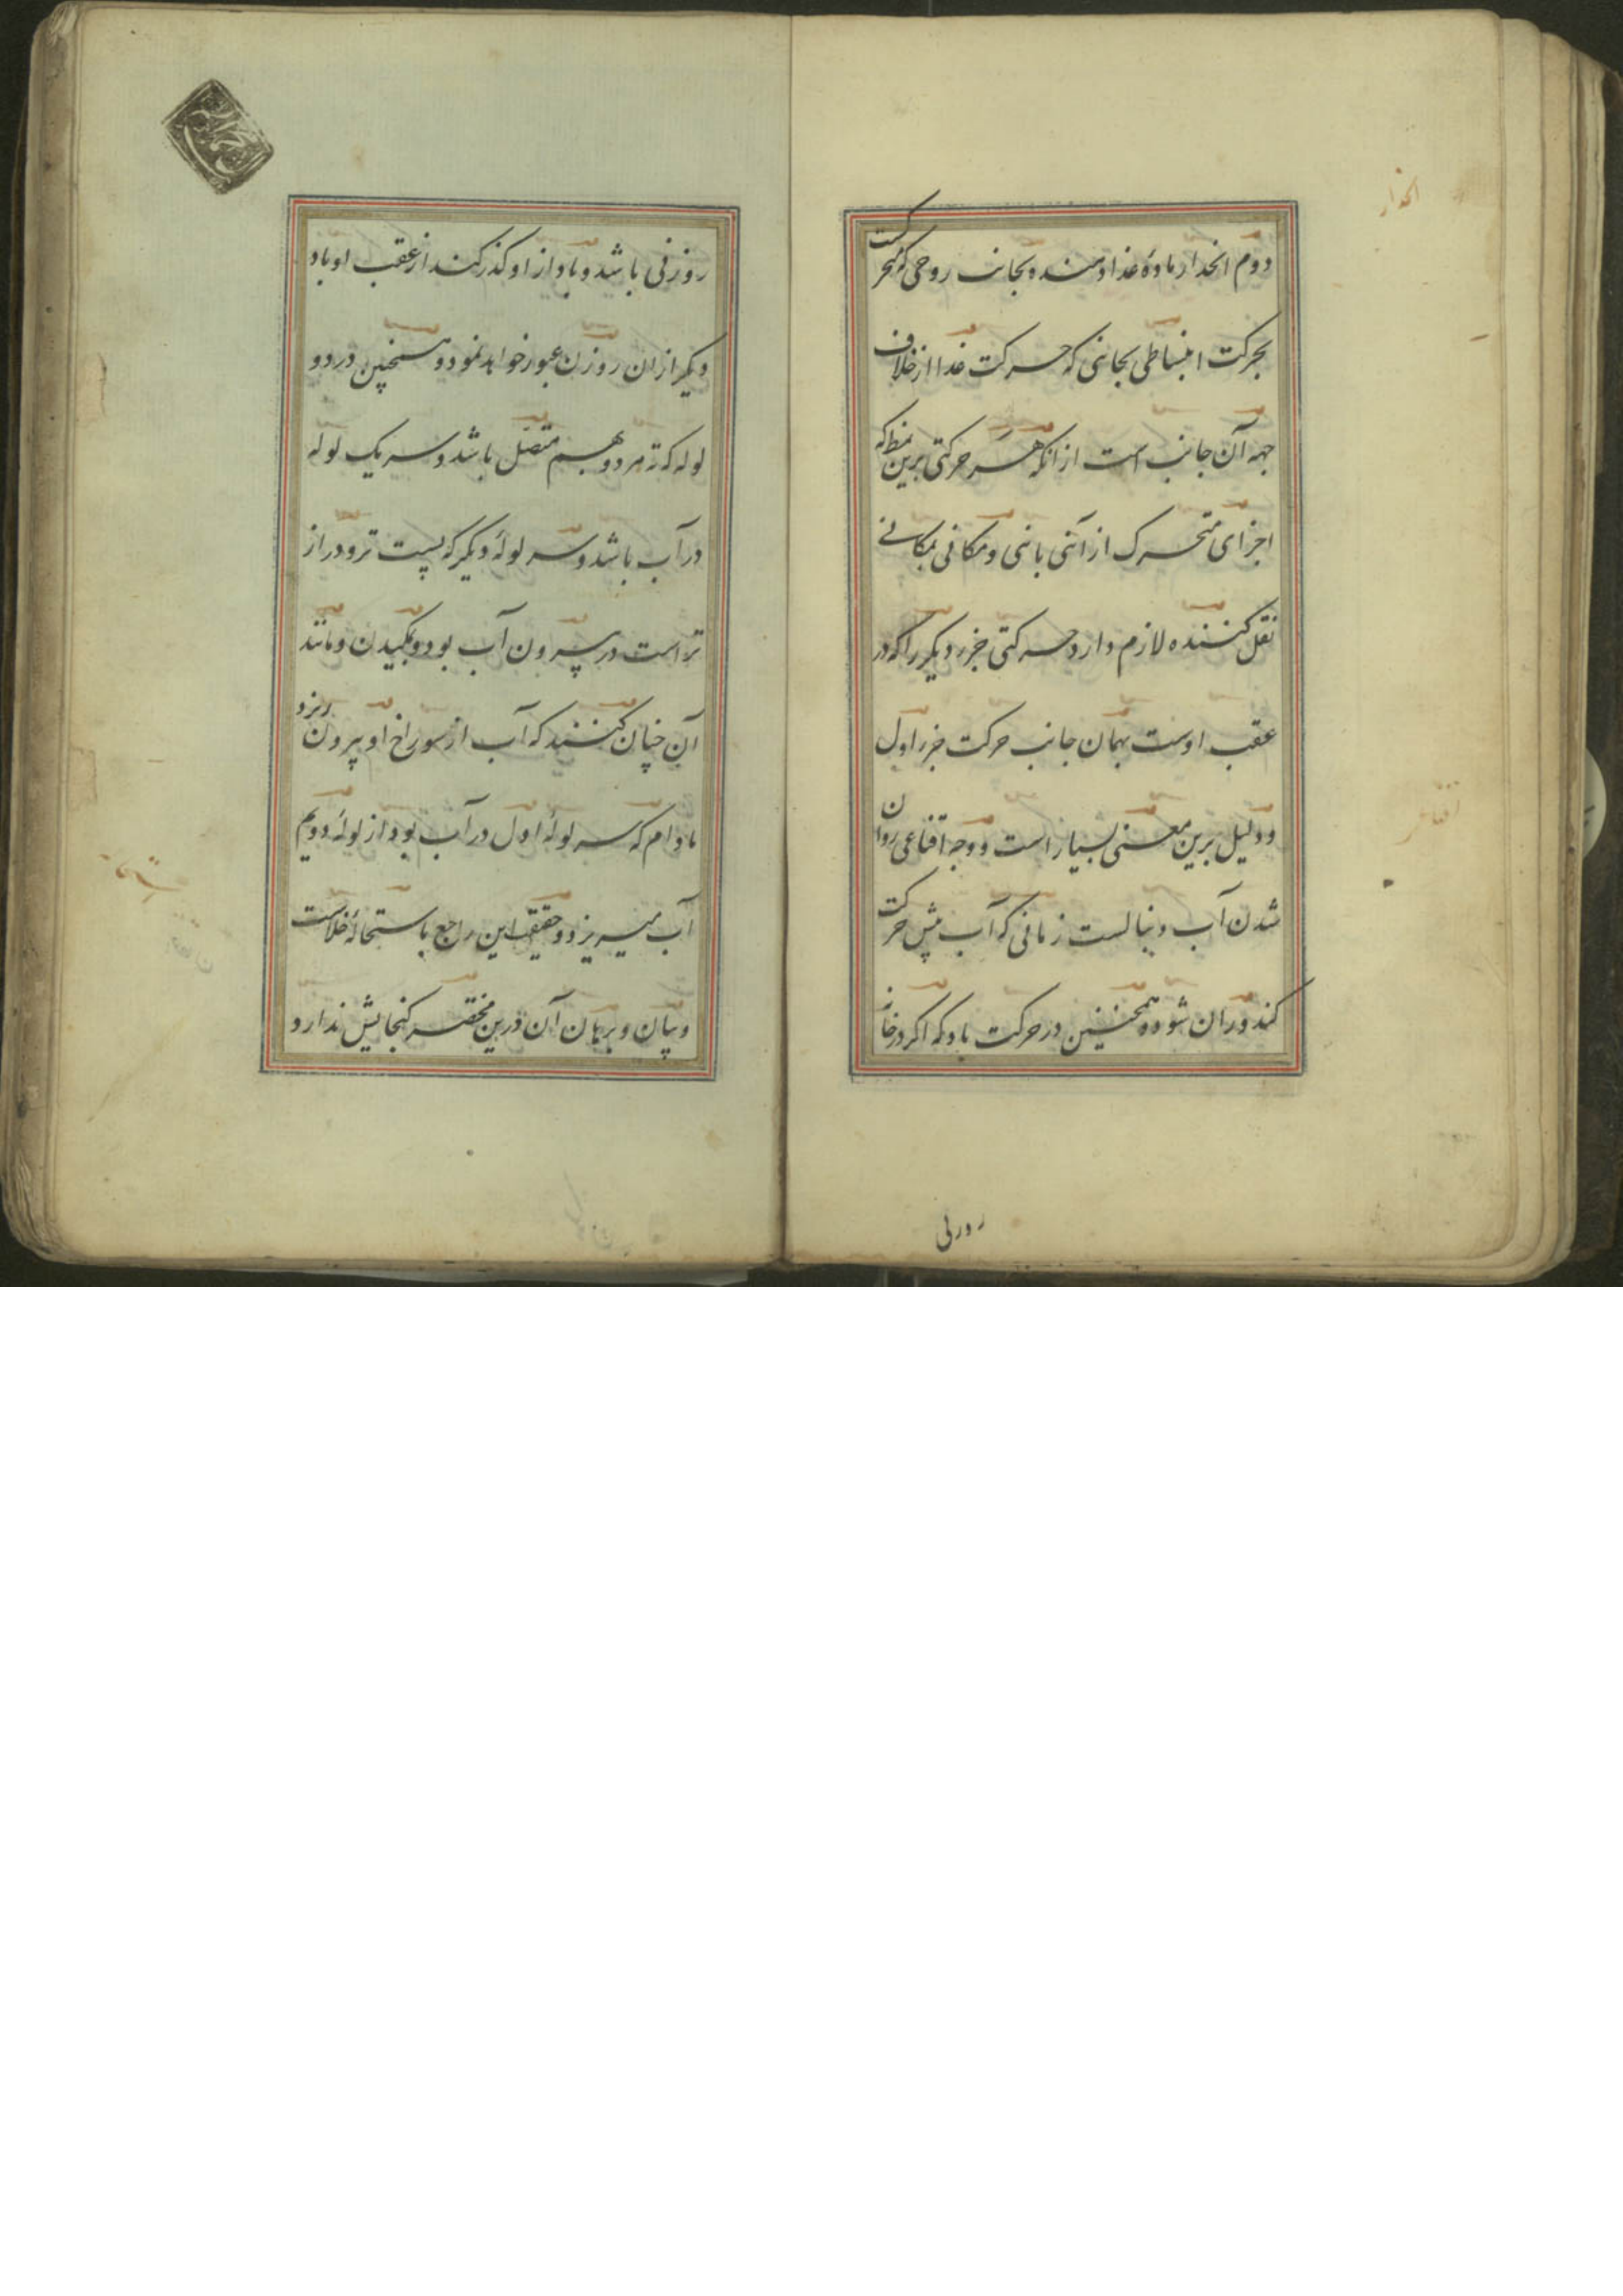 دوم انحدار ماده غذا دهنده بجانب روحی که متحرکست
بحرکت انبساطی بجانبی که حرکت غذا از خلاف
جهه آن جانب است از آنکه هر حرکتی برین نمط که
اجزای متحرک از آنی بانی و مکانی بمکانی
نقل کننده لازم دارد حرکتی جزء دیگر را که در
عقب اوست بهمان جانب حرکت جزء اول
و دلیل برین معنی بسیار است و وجه اقناعی روان
شدن آب دنبالست زمانی که آب پیش حرکت
کند و ران شود و همچنین در حرکت باد که اکر در خانه
روزنی
روزنی باشد و باد از او کذر کند از عقب او باد
دیکر از ان روزن عبور خواهد نمود و همچنین در دو
لوله که ته هر دو بهم متصل باشد و سر یک لوله
در آب باشد و سر لولهٔ دیکر که پست تر و دراز
تر است در بیرون آب بود و بمکیدن و مانند
آن چنان کنند که آب از سوراخ او بیرون ریزد
مادام که سر لولهٔ اول در آب بود از لولهٔ دویم
آب میریزد و حقیقت این راجع باستحالهٔ خلاست
و بیان و برهان آن درین مختصر کنجایش ندارد